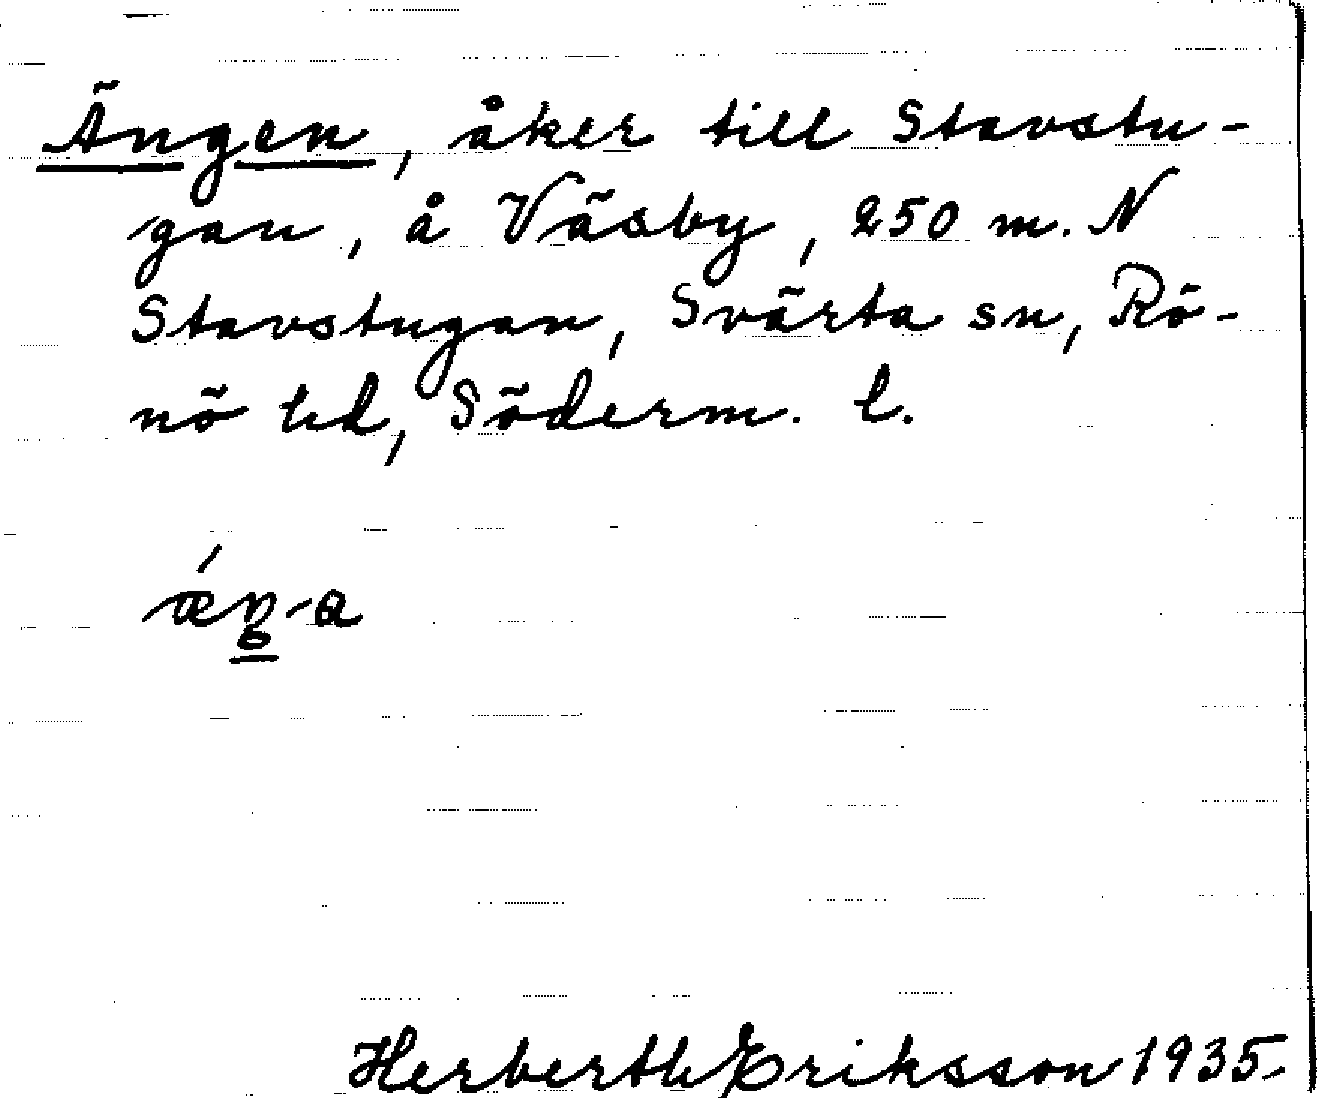 Ängen, åker till Stavstu-
gan, å Väsby, 250 m. N
Stavstugan, Svärta sn, Rö-
nö hd, Söderm. l.
ǽŋ-a
Herberth Eriksson 1935.